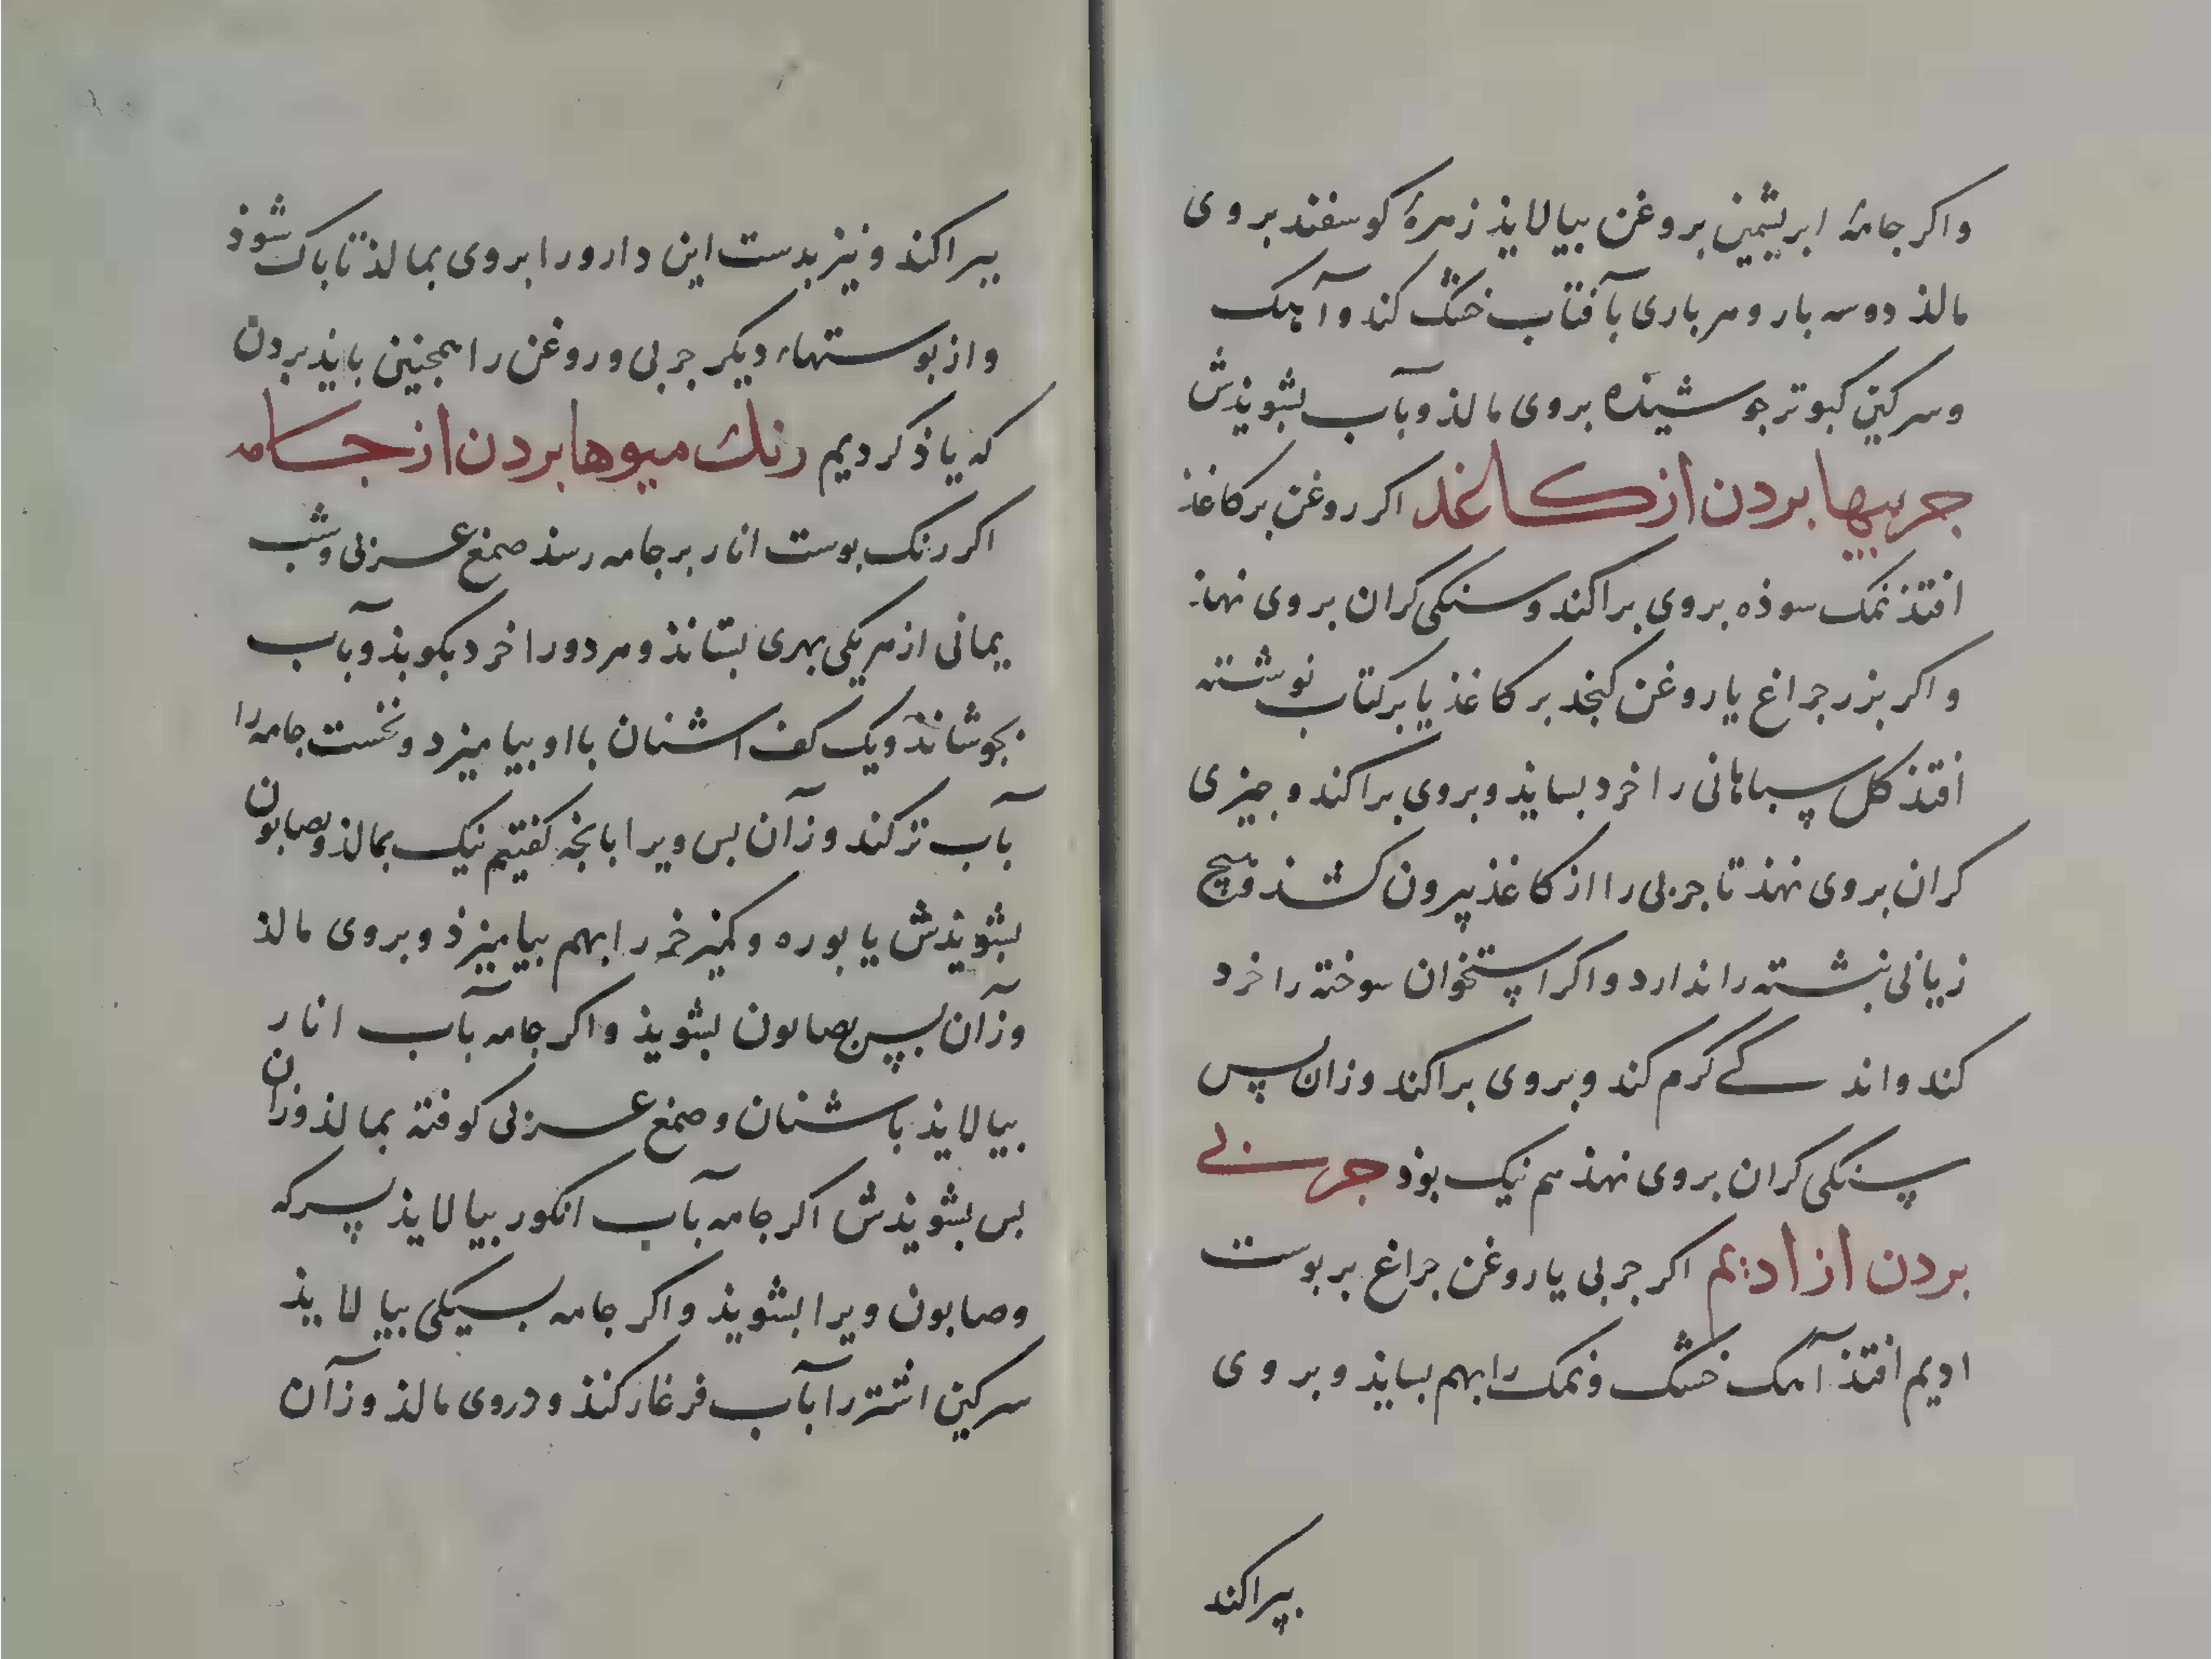 واکر جامهٔ ابریشمین بروغن بیالاید زهرهٔ کوسفند بروی
مالذ دوسه بار و هرباری بآفتاب خشک کند و آهک
وسرکین کبوتر جوشیذه بروی مالذ وبآب بشویذش
جربیها بردن از کاغد اکر روغن بر کاغذ
افتذ نمک سوذه بروی براکند وسنکی کران بروی نهذ
واکر بزر جراغ یا روغن کنجد بر کاغذ یا بر کتاب نوشته
افتذ کل سباهانی را خرد بسایذ وبروی براکند وجیزی
کران بروی نهذ تا جربی را از کاغذ بیرون کشذ وهیچ
زیانی نبشته را ندارد واکر استخوان سوخته را خرد
کند واند کے کرم کند وبروی براکند وزان پس
سنکی کران بروی نهذ هم نیک بوذ جربی
بردن از ادیم اکر جربی یا روغن جراغ بر بوست
ادیم افتذ آهک خشک ونمک را بهم بسایذ وبروی
بپراکند
ببراکند ونیز بدست این دارو را بروی بمالذ تا باک شوذ
واز بوستهاء دیکر جربی وروغن را همجنین بایذ بردن
که یاذ کردیم رنک میوها بردن از جامه
اکر رنک بوست انار بر جامه رسذ صمغ عربی وشب
یمانی از هریکی بهری بستانذ وهردو را خرد بکوبذ وبآب
بجوشانذ ویک کف اشنان با او بیامیزد ونخست جامه را
بآب تر کند وزآن بس ویرا بانجه کفتیم نیک بمالذ وبصابون
بشویذش یا بوره وکمیز خر را بهم بیامیزذ وبروی مالذ
وزآن پس بصابون بشویذ واکر جامه بآب انار
بیالایذ باشنان وصمغ عربی کوفته بمالذ وزان
بس بشویذش اکر جامه بآب انکور بیالایذ بسرکه
وصابون ویرا بشویذ واکر جامه بسیکی بیالایذ
سرکین اشتر را بآب فرغار کنذ ودروی مالذ وزآن